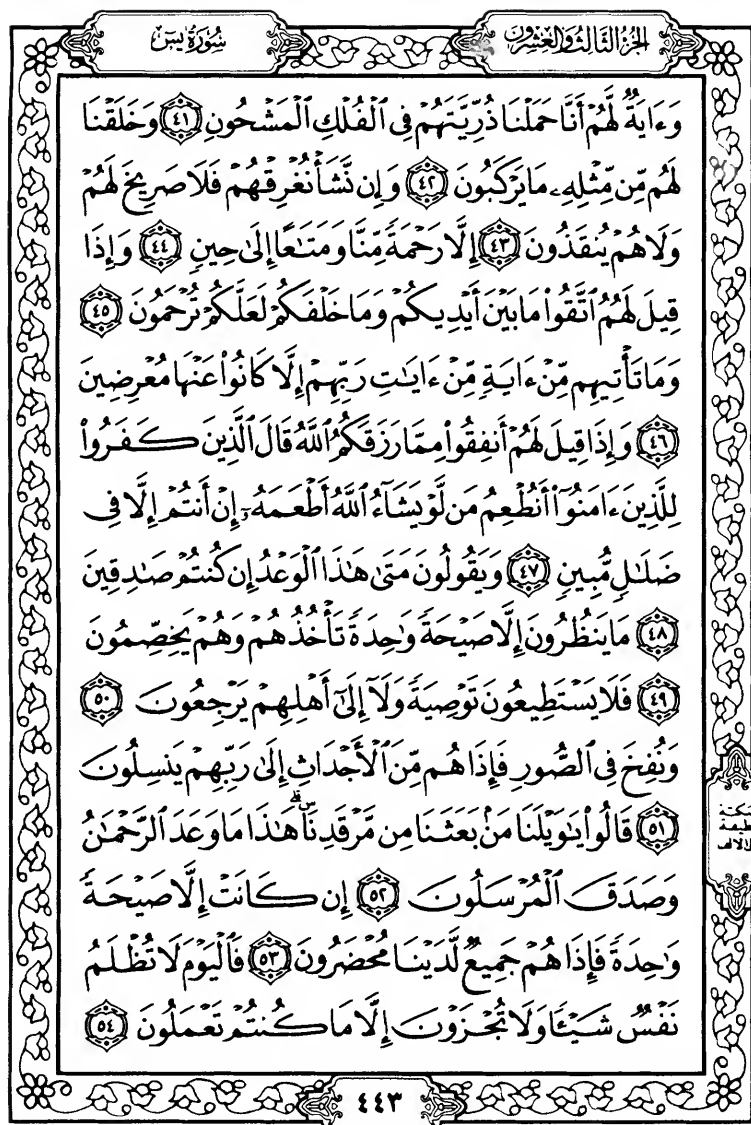 الجزء الثالث والعشرون
سورة يس
وَءَايَةٌ لَّهُمْ أَنَّا حَمَلْنَا ذُرِّيَّتَهُمْ فِي ٱلْفُلْكِ ٱلْمَشْحُونِ ٤١ وَخَلَقْنَا
لَهُم مِّن مِّثْلِهِۦ مَا يَرْكَبُونَ ٤٢ وَإِن نَّشَأْ نُغْرِقْهُمْ فَلَا صَرِيخَ لَهُمْ
وَلَا هُمْ يُنقَذُونَ ٤٣ إِلَّا رَحْمَةً مِّنَّا وَمَتَـٰعًا إِلَىٰ حِينٍ ٤٤ وَإِذَا
قِيلَ لَهُمُ ٱتَّقُوا۟ مَا بَيْنَ أَيْدِيكُمْ وَمَا خَلْفَكُمْ لَعَلَّكُمْ تُرْحَمُونَ ٤٥
وَمَا تَأْتِيهِم مِّنْ ءَايَةٍ مِّنْ ءَايَـٰتِ رَبِّهِمْ إِلَّا كَانُوا۟ عَنْهَا مُعْرِضِينَ
٤٦ وَإِذَا قِيلَ لَهُمْ أَنفِقُوا۟ مِمَّا رَزَقَكُمُ ٱللَّهُ قَالَ ٱلَّذِينَ كَفَرُوا۟
لِلَّذِينَ ءَامَنُوٓا۟ أَنُطْعِمُ مَن لَّوْ يَشَآءُ ٱللَّهُ أَطْعَمَهُۥٓ إِنْ أَنتُمْ إِلَّا فِى
ضَلَـٰلٍ مُّبِينٍ ٤٧ وَيَقُولُونَ مَتَىٰ هَـٰذَا ٱلْوَعْدُ إِن كُنتُمْ صَـٰدِقِينَ
٤٨ مَا يَنظُرُونَ إِلَّا صَيْحَةً وَٰحِدَةً تَأْخُذُهُمْ وَهُمْ يَخِصِّمُونَ
٤٩ فَلَا يَسْتَطِيعُونَ تَوْصِيَةً وَلَآ إِلَىٰٓ أَهْلِهِمْ يَرْجِعُونَ ٥٠
وَنُفِخَ فِى ٱلصُّورِ فَإِذَا هُم مِّنَ ٱلْأَجْدَاثِ إِلَىٰ رَبِّهِمْ يَنسِلُونَ
٥١ قَالُوا۟ يَـٰوَيْلَنَا مَنۢ بَعَثَنَا مِن مَّرْقَدِنَا ۜ ۗ هَـٰذَا مَا وَعَدَ ٱلرَّحْمَـٰنُ
وَصَدَقَ ٱلْمُرْسَلُونَ ٥٢ إِن كَانَتْ إِلَّا صَيْحَةً
وَٰحِدَةً فَإِذَا هُمْ جَمِيعٌ لَّدَيْنَا مُحْضَرُونَ ٥٣ فَٱلْيَوْمَ لَا تُظْلَمُ
نَفْسٌ شَيْـًٔا وَلَا تُجْزَوْنَ إِلَّا مَا كُنتُمْ تَعْمَلُونَ ٥٤
٤٤٣